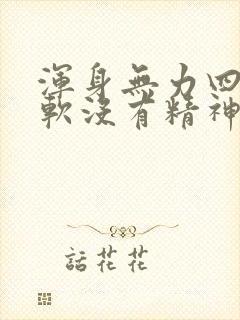 渾身無力四
軟沒有精神
話花花